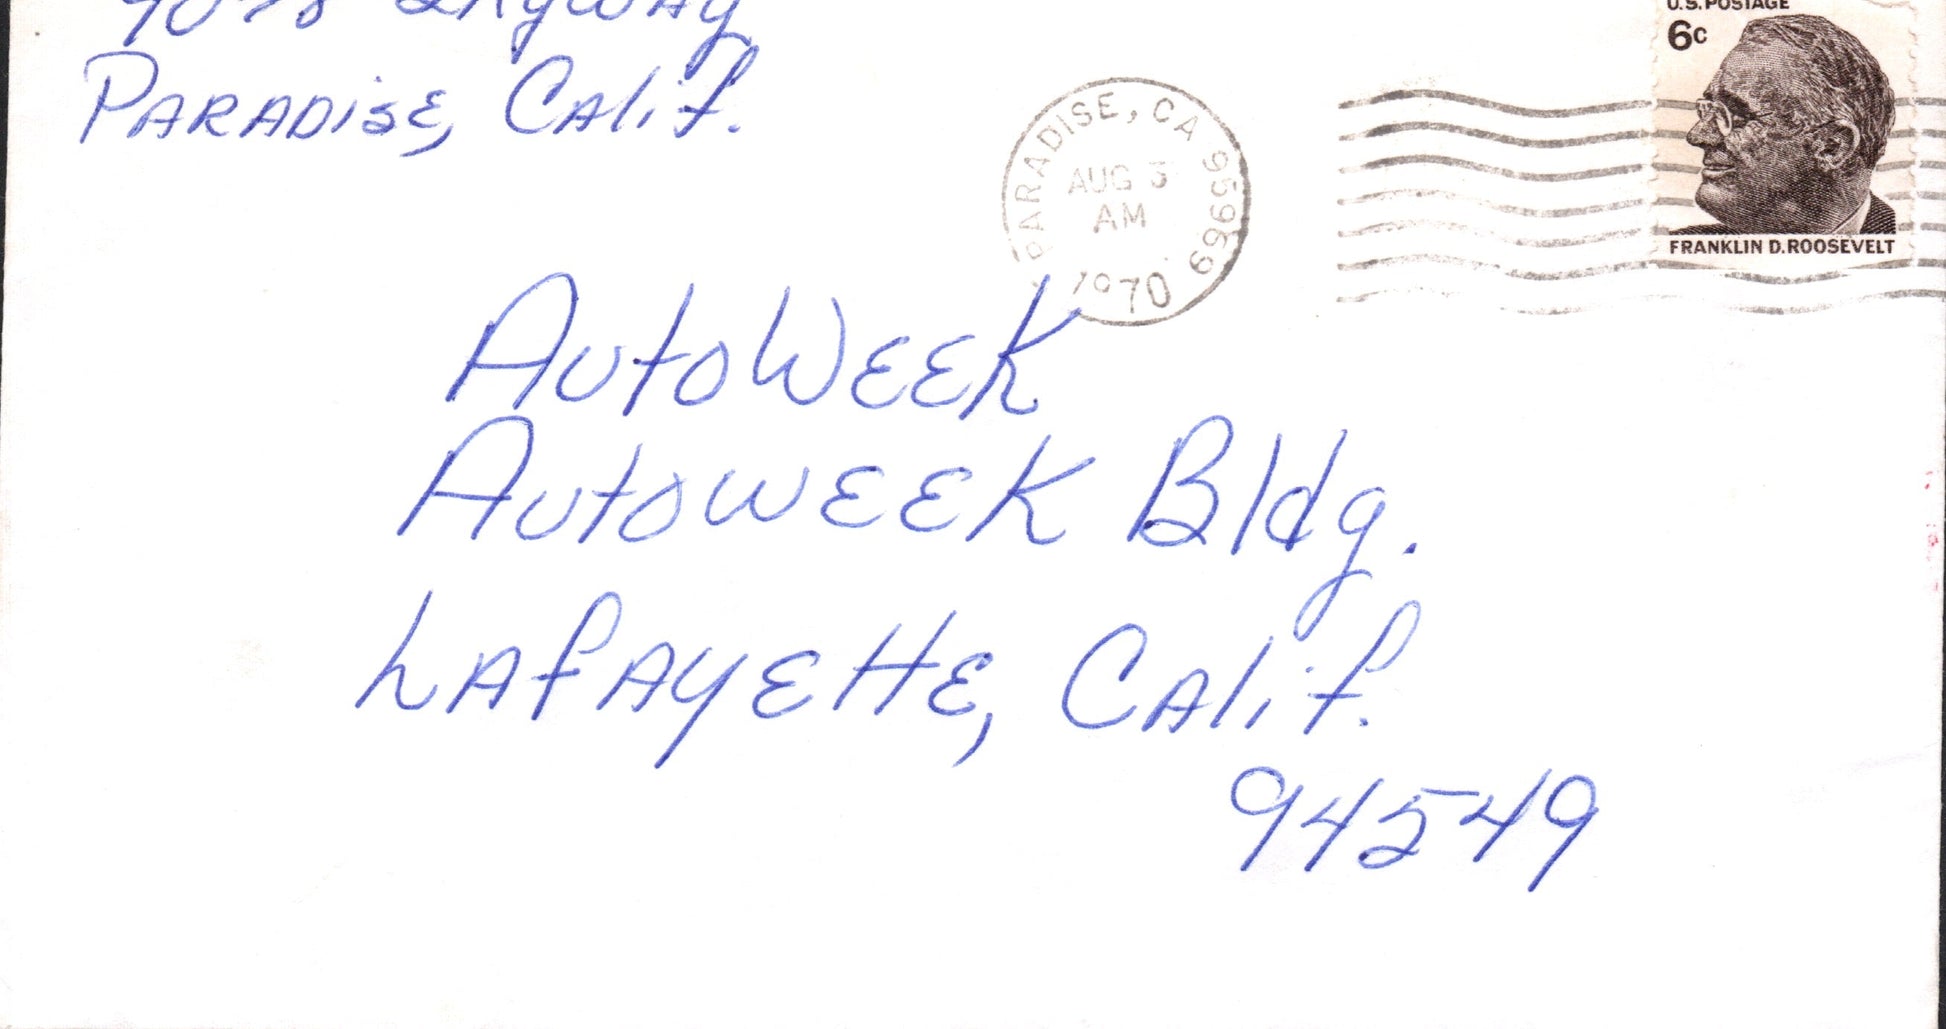 Skyway
PARADISE, Calif.
U.S. POSTAGE
6c
FRANKLIN D. ROOSEVELT
PARADISE, CA 95969
AUG 3
AM
1970
AutoWeek
Autoweek Bldg.
Lafayette, Calif.
94549